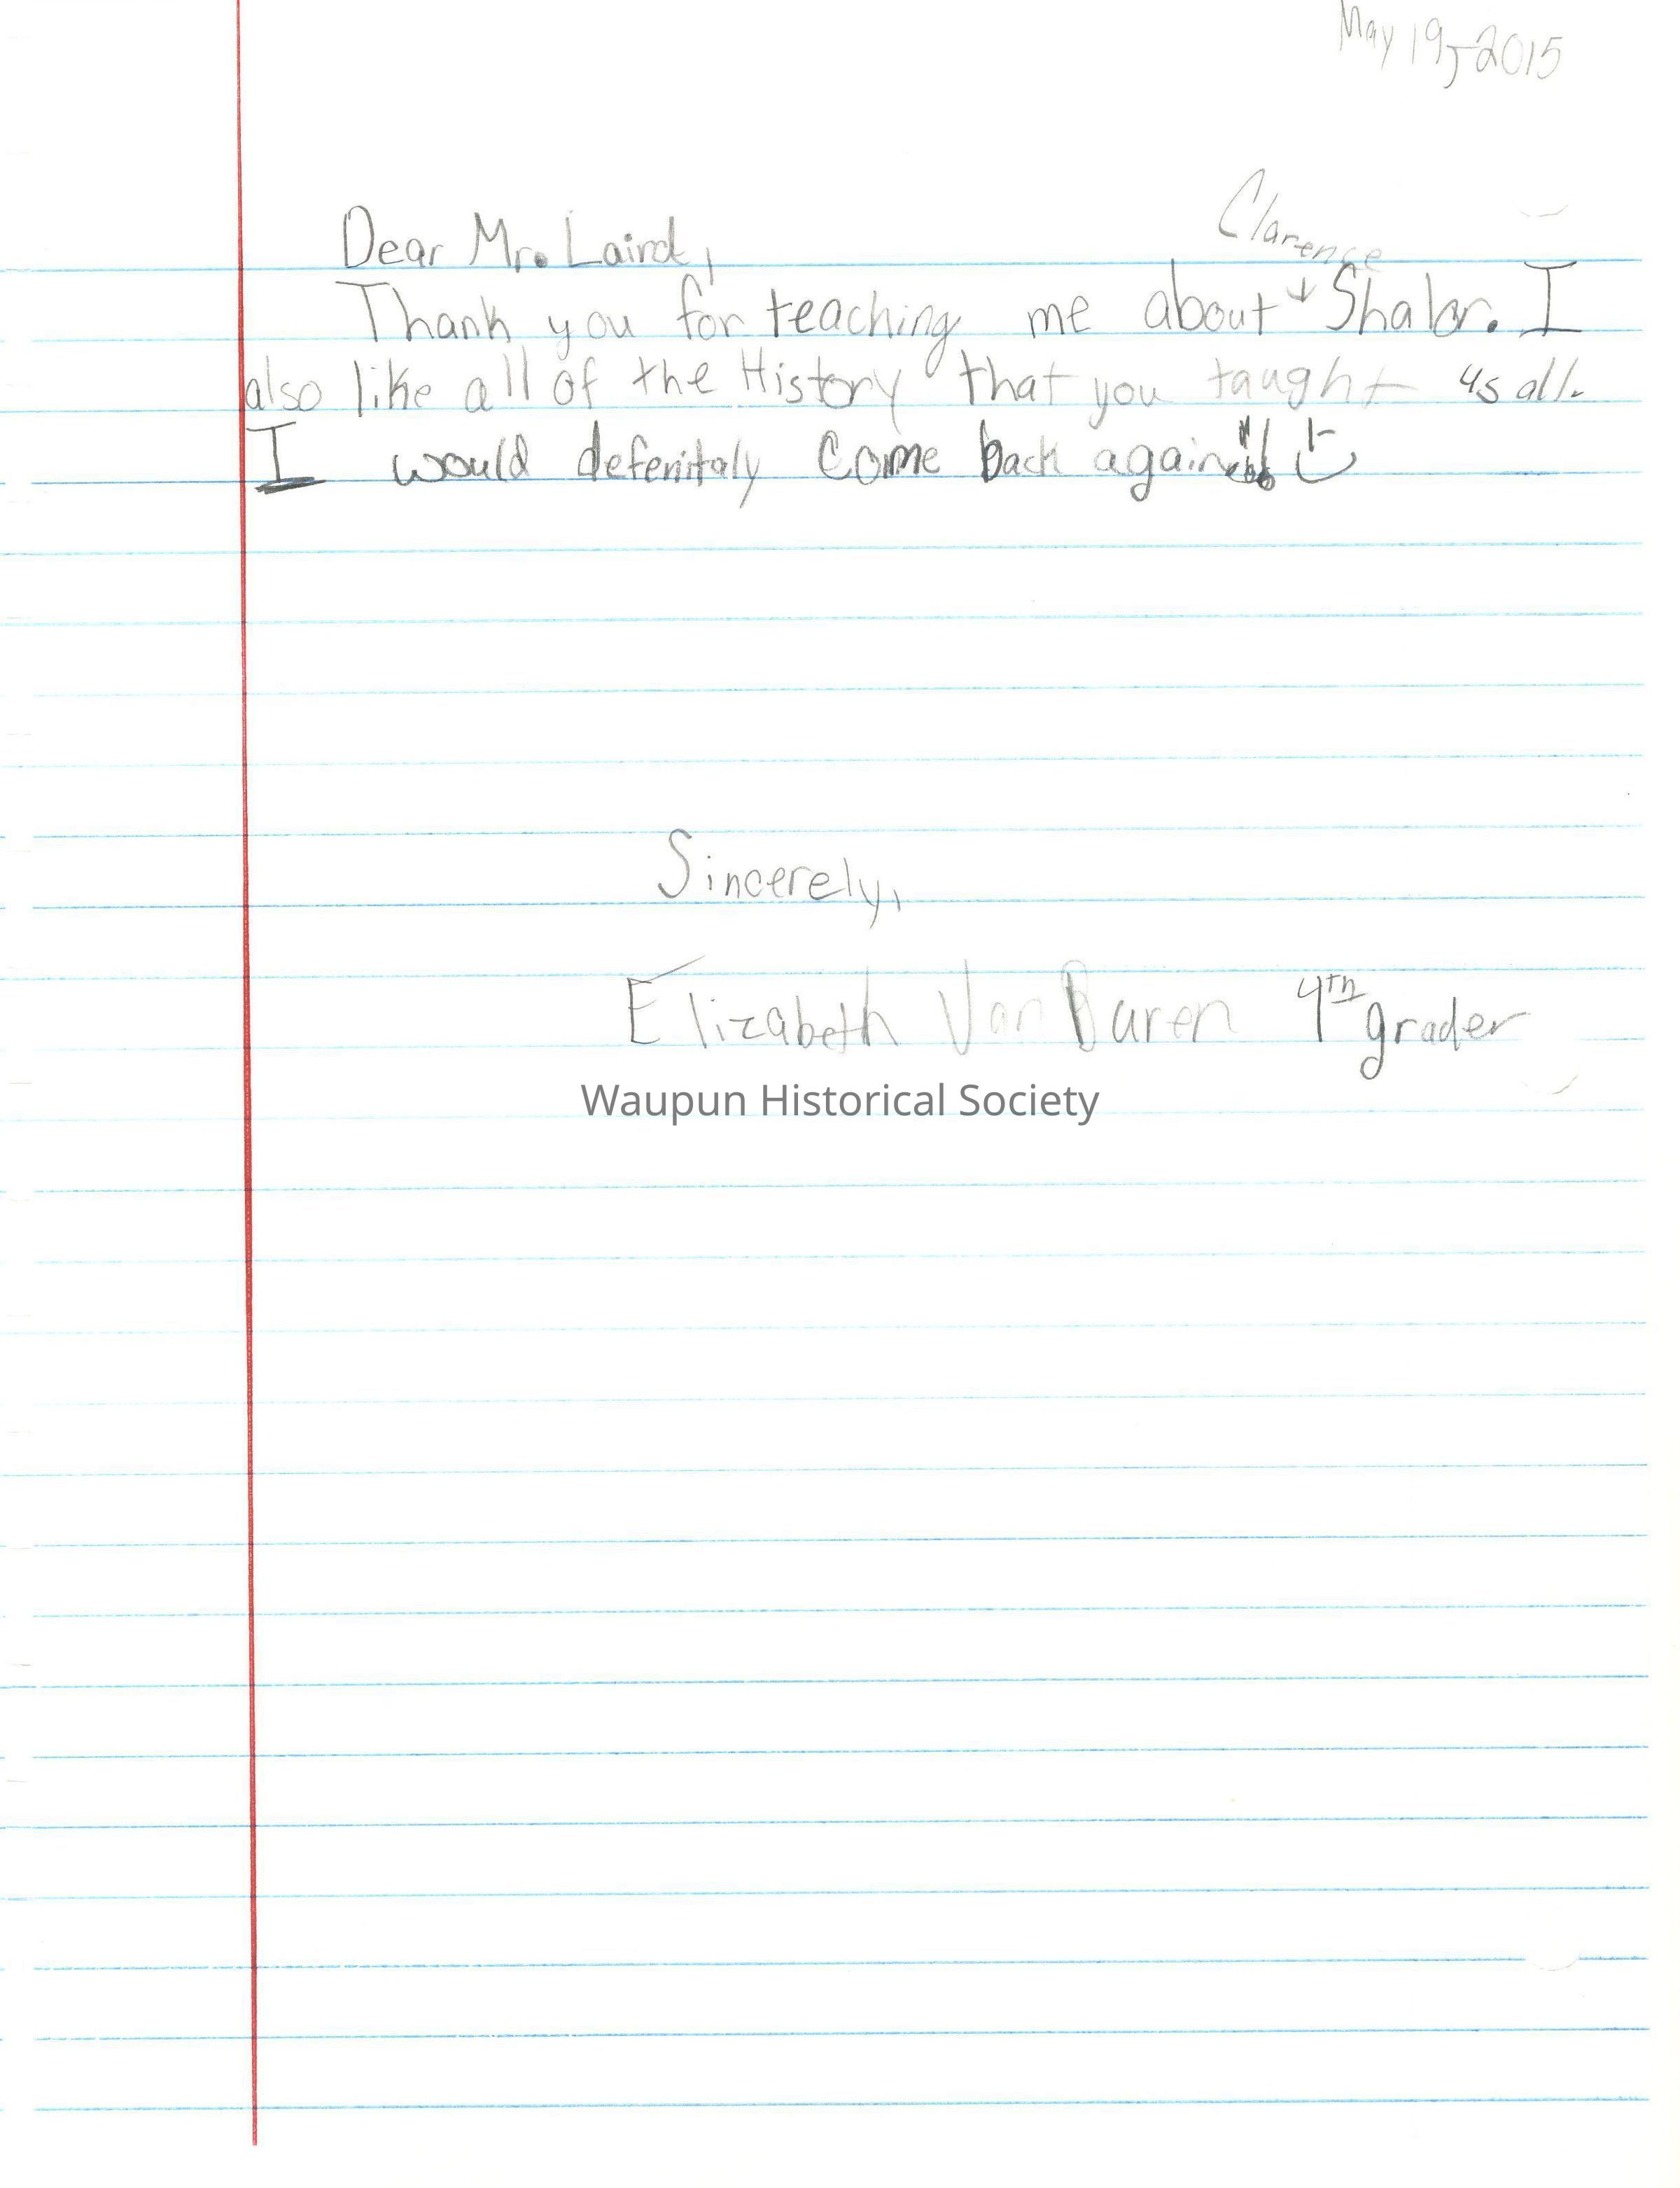 May 19, 2015
Dear Mr. Laird,
Clarence
Thank you for teaching me about ↓ Shaler. I
also like all of the History that you taught us all.
I would defenitaly Come back again!! :)
Sincerely,
Elizabeth Van Buren 4th grader
Waupun Historical Society